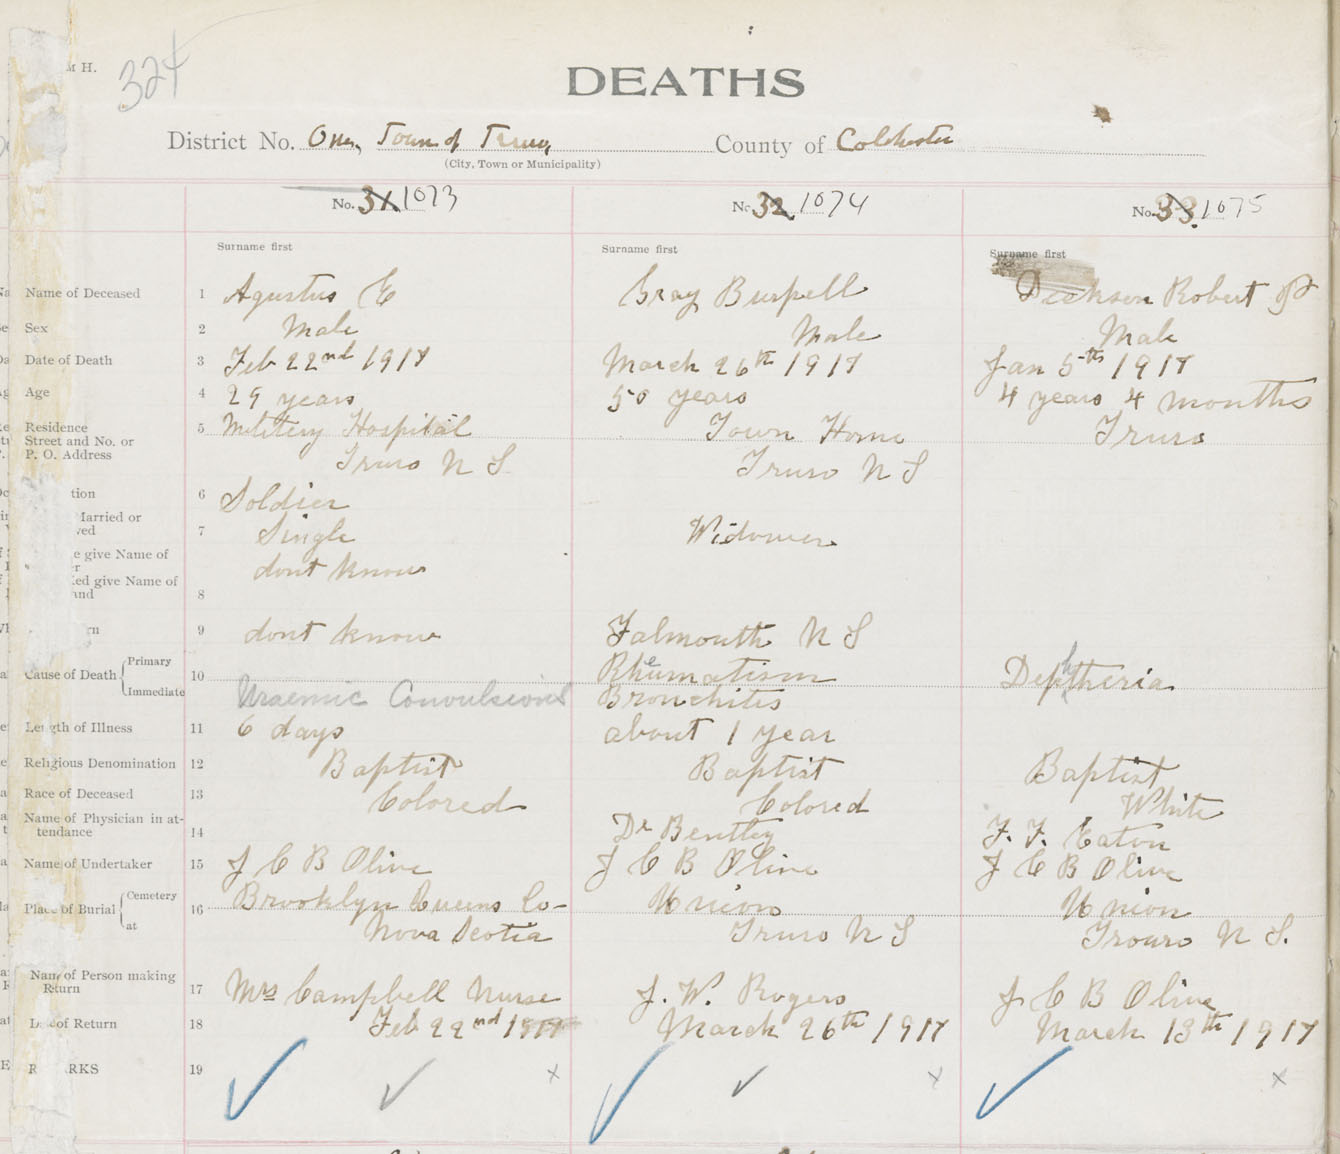 M H.
324
DEATHS
District No. One, Town of Truro, County of Colchester
(City, Town or Municipality)
No. 31 1073 No. 32 1074 No. 33 1075
Surname first Surname first Surname first
Name of Deceased 1 Agustus E Gray Burpell Dickson Robert
Sex 2 Male Male Male
Date of Death 3 Feb 22nd 1917 March 26th 1917 Jan 5th 1917
Age 4 29 years 50 years 4 years 4 months
Residence 5 Militery Hospital Town Home Truro
Street and No. or
P. O. Address Truro N S Truro N S
tion 6 Soldier
Married or
ved 7 Single Widower
e give Name of
r dont know
ed give Name of
and 8
rn 9 dont know Falmouth N S
Cause of Death Primary 10 Rheumatism Dephtheria
Immediate Uraemic Convulsions Bronchitis
Length of Illness 11 6 days about 1 year
Religious Denomination 12 Baptist Baptist Baptist
Race of Deceased 13 Colored Colored White
Name of Physician in at-
tendance 14 Dr Bentley F. F. Eaton
Name of Undertaker 15 J C B Olive J C B Olive J C B Olive
Place of Burial Cemetery 16 Brooklyn Queens Co- Union Union
at Nova Scotia Truro N S Trouro N S.
Name of Person making
Return 17 Mrs Campbell Nurse J. W. Rogers J C B Olive
D of Return 18 Feb 22nd 1917 March 26th 1917 March 13th 1917
R RKS 19